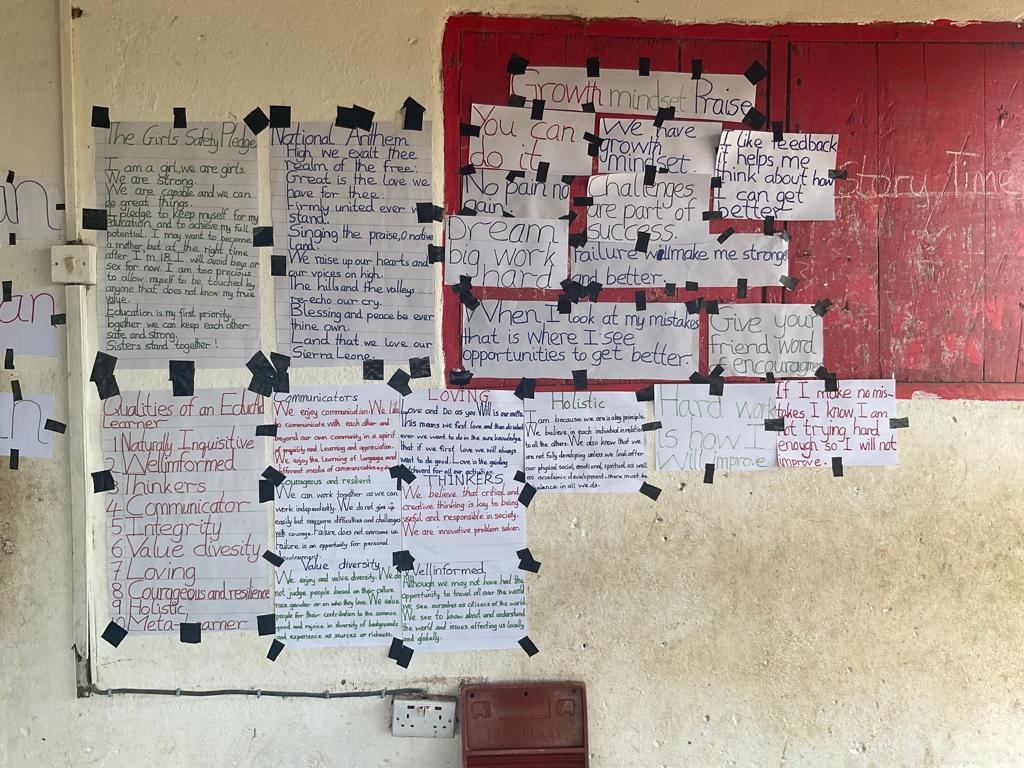 an
an
n
The Girls Safety Pledge
I am a girl, we are girls.
We are strong.
We are capable and we can
do great things.
I pledge to keep myself for my
education, and to achieve my full
potential. I may want to become
a mother, but at the right time
after I'm 18. I will avoid boys or
sex for now. I am too precious
to allow myself to be touched by
anyone that does not know my true
value.
Education is my first priority,
together we can keep each other
safe and strong.
Sisters stand together!
National Anthem
High we exalt thee
realm of the free:
Great is the love we
have for thee.
Firmly united ever we
stand.
Singing the praise, O native
land.
We raise up our hearts and
our voices on high.
The hills and the valleys
re-echo our cry.
Blessing and peace be ever
thine own.
Land that we love our
Sierra Leone.
Growth mindset Praise
You can
do it
We have
growth
mindset
I like feedback
it helps me
think about how
I can get
better
No pain no
gain
Challenges
are part of
success.
Dream
big work
hard
Failure will make me stronge
and better.
When I look at my mistakes
that is where I see
opportunities to get better.
Give your
friend word
of encouragm
Story Time
Qualities of an
Learner
1 Naturally Inquisitive
2 Wellinformed
3 Thinkers
4 Communicator
5 Integrity
6 Value divesity
7 Loving
8 Courageous and resilience
9 Holistic
10 Meta-Learner
Communicators
We enjoy communication. We
communicate with each other and
beyond our own community in a spirit
of inquisity and Learning and appreciation.
We enjoy the Learning of Language and
different medias of communication
Courageous and resilient
We can work together as we can
work independently. We do not give up
easily but overcome difficulties and challenges
with courage. Failure does not overcome us
Failure is an opportunity for personal
Value diversity
We enjoy and value diversity. We do
not judge people based on their culture
race gender or on who they love. We value
people for their contribution to the common
good and rejoice in diversity of backgrounds
and experience as sources or richness.
LOVING
Love and Do as you Will is our
This means we first love and then do what
ever we want to do in the sure knowledge
that if we first love we will always
want to do good. Love is the guiding
for all our activities.
THINKERS
We believe that critical and
creative thinking is key to being
useful and responsible in society.
We are innovative problem solver.
Wellinformed
Although we may not have had the
opportunity to travel all over the world
we see ourselves as citizens of the world
We seek to know about and understand
the world and issues affecting us locally
and globally.
Holistic
I am because we are is a key principle.
We believe in each individual in relation
to all the others. We also know that we
are not fully developing unless we look after
our physical social, emotional, spiritual as well
as academic development - there must be
balance in all we do.
Hard work
is how I
Will improve
If I make no mis-
takes I know I am
not trying hard
enough so I will not
improve.